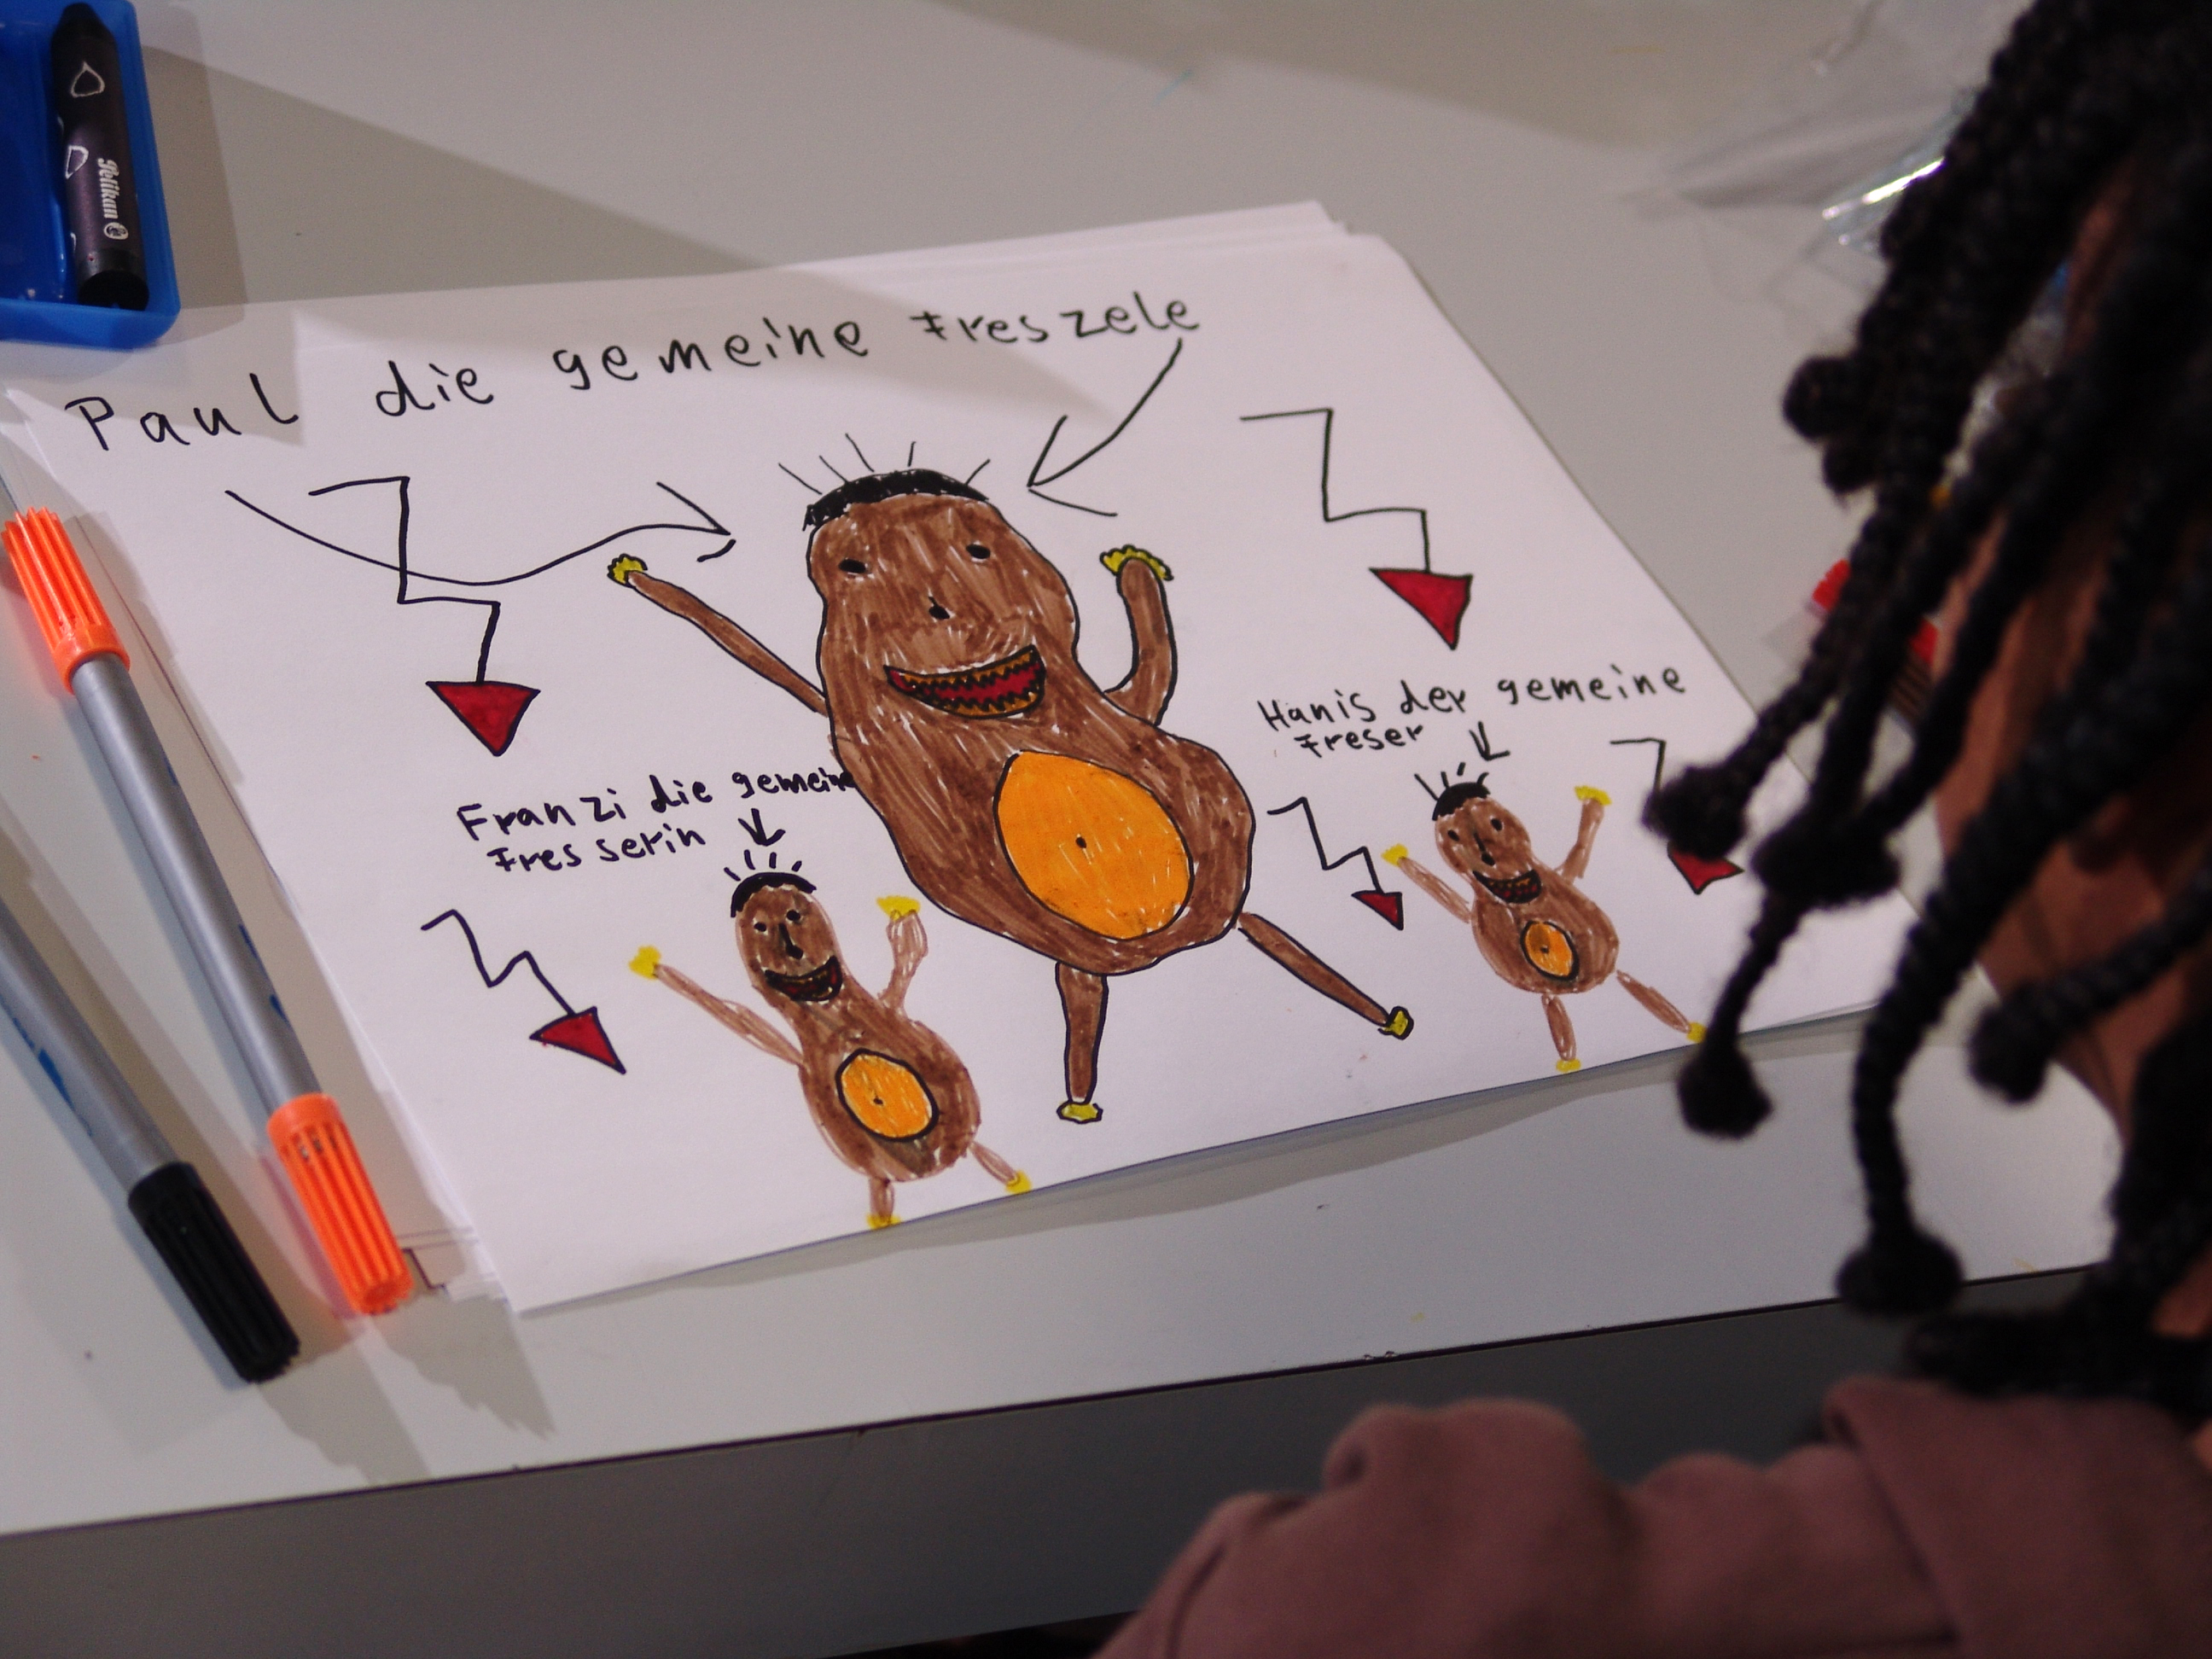 Pelikan
Paul die gemeine Freszele
Hanis der gemeine
Freser
Franzi die gemeine
Fresserin